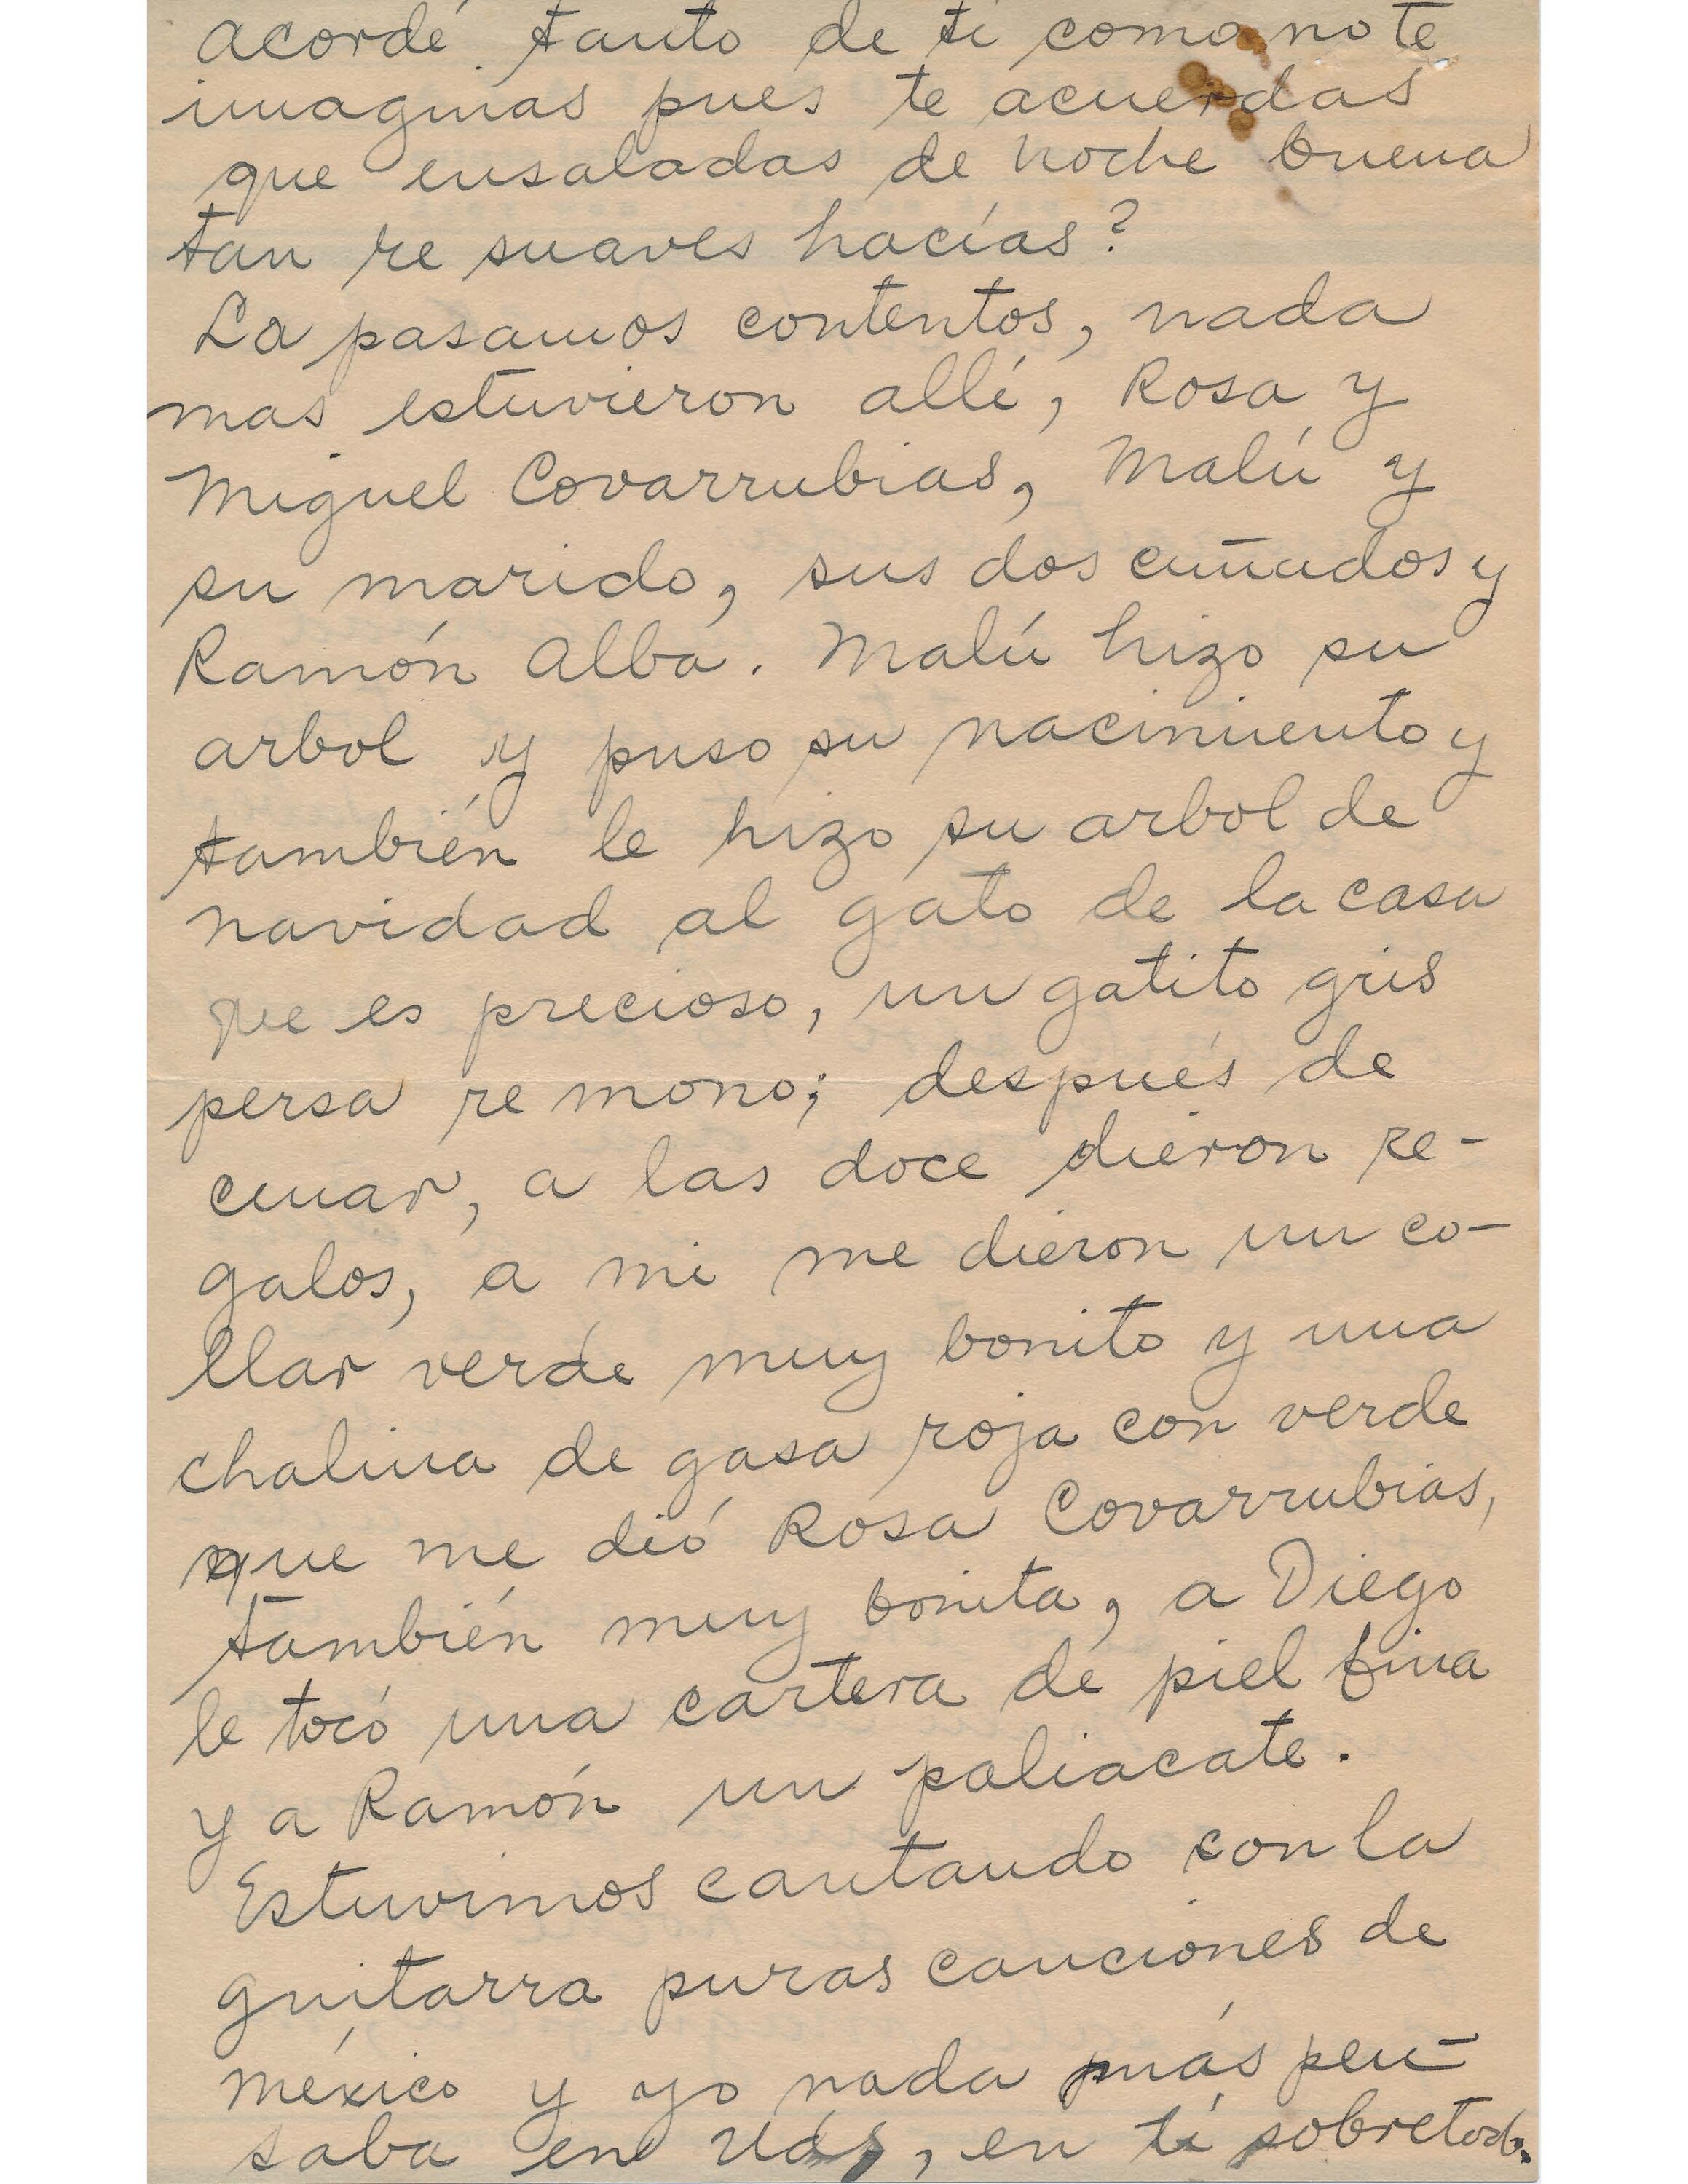 acordé tanto de ti como no te
imaginas pues te acuerdas
que ensaladas de noche buena
tan re suaves hacías?
La pasamos contentos, nada
mas estuvieron allí, Rosa y
Miguel Covarrubias, Malú y
su marido, sus dos cuñados y
Ramón Alba. Malú hizo su
arbol y puso su nacimiento y
también le hizo su arbol de
navidad al gato de la casa
que es precioso, un gatito gris
persa re mono; después de
cenar, a las doce dieron re-
galos, a mi me dieron un co-
llar verde muy bonito y una
chalina de gasa roja con verde
que me dió Rosa Covarrubias,
también muy bonita, a Diego
le tocó una cartera de piel fina
y a Ramón un paliacate.
Estuvimos cantando con la
guitarra puras canciones de
México y yo nada más pen-
saba en Uds, en tí sobretodo.